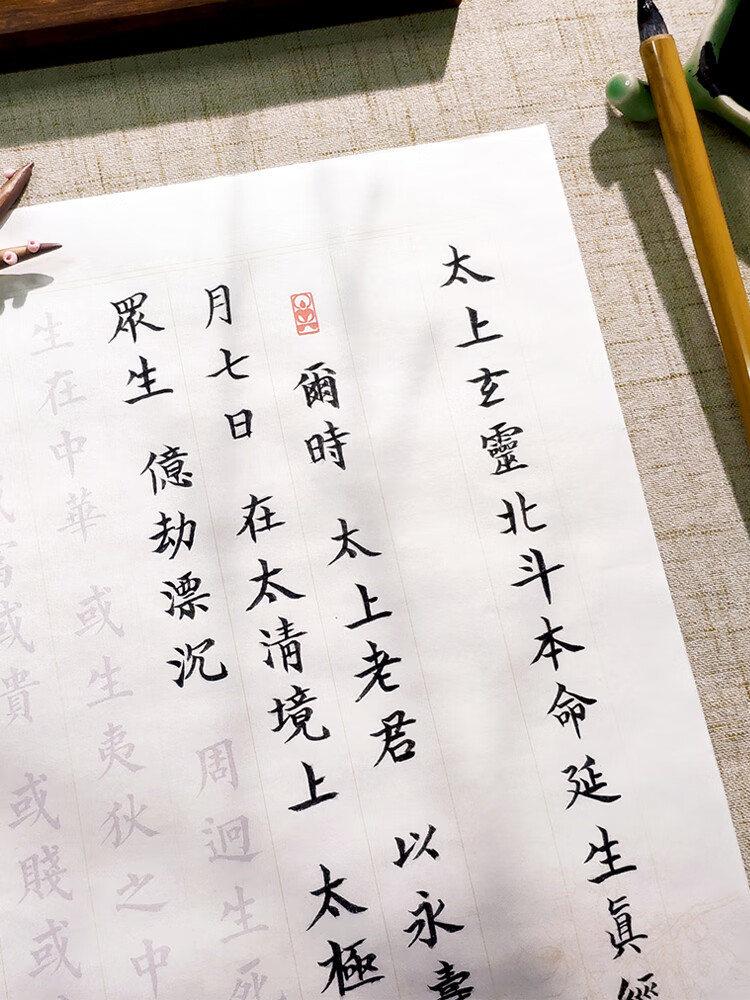 太上玄靈北斗本命延生眞經
爾時 太上老君 以永壽
月七日 在太清境上 太極
眾生 億劫漂沉 周迴生死
生在中華 或生夷狄之中
或富或貴 或賤或